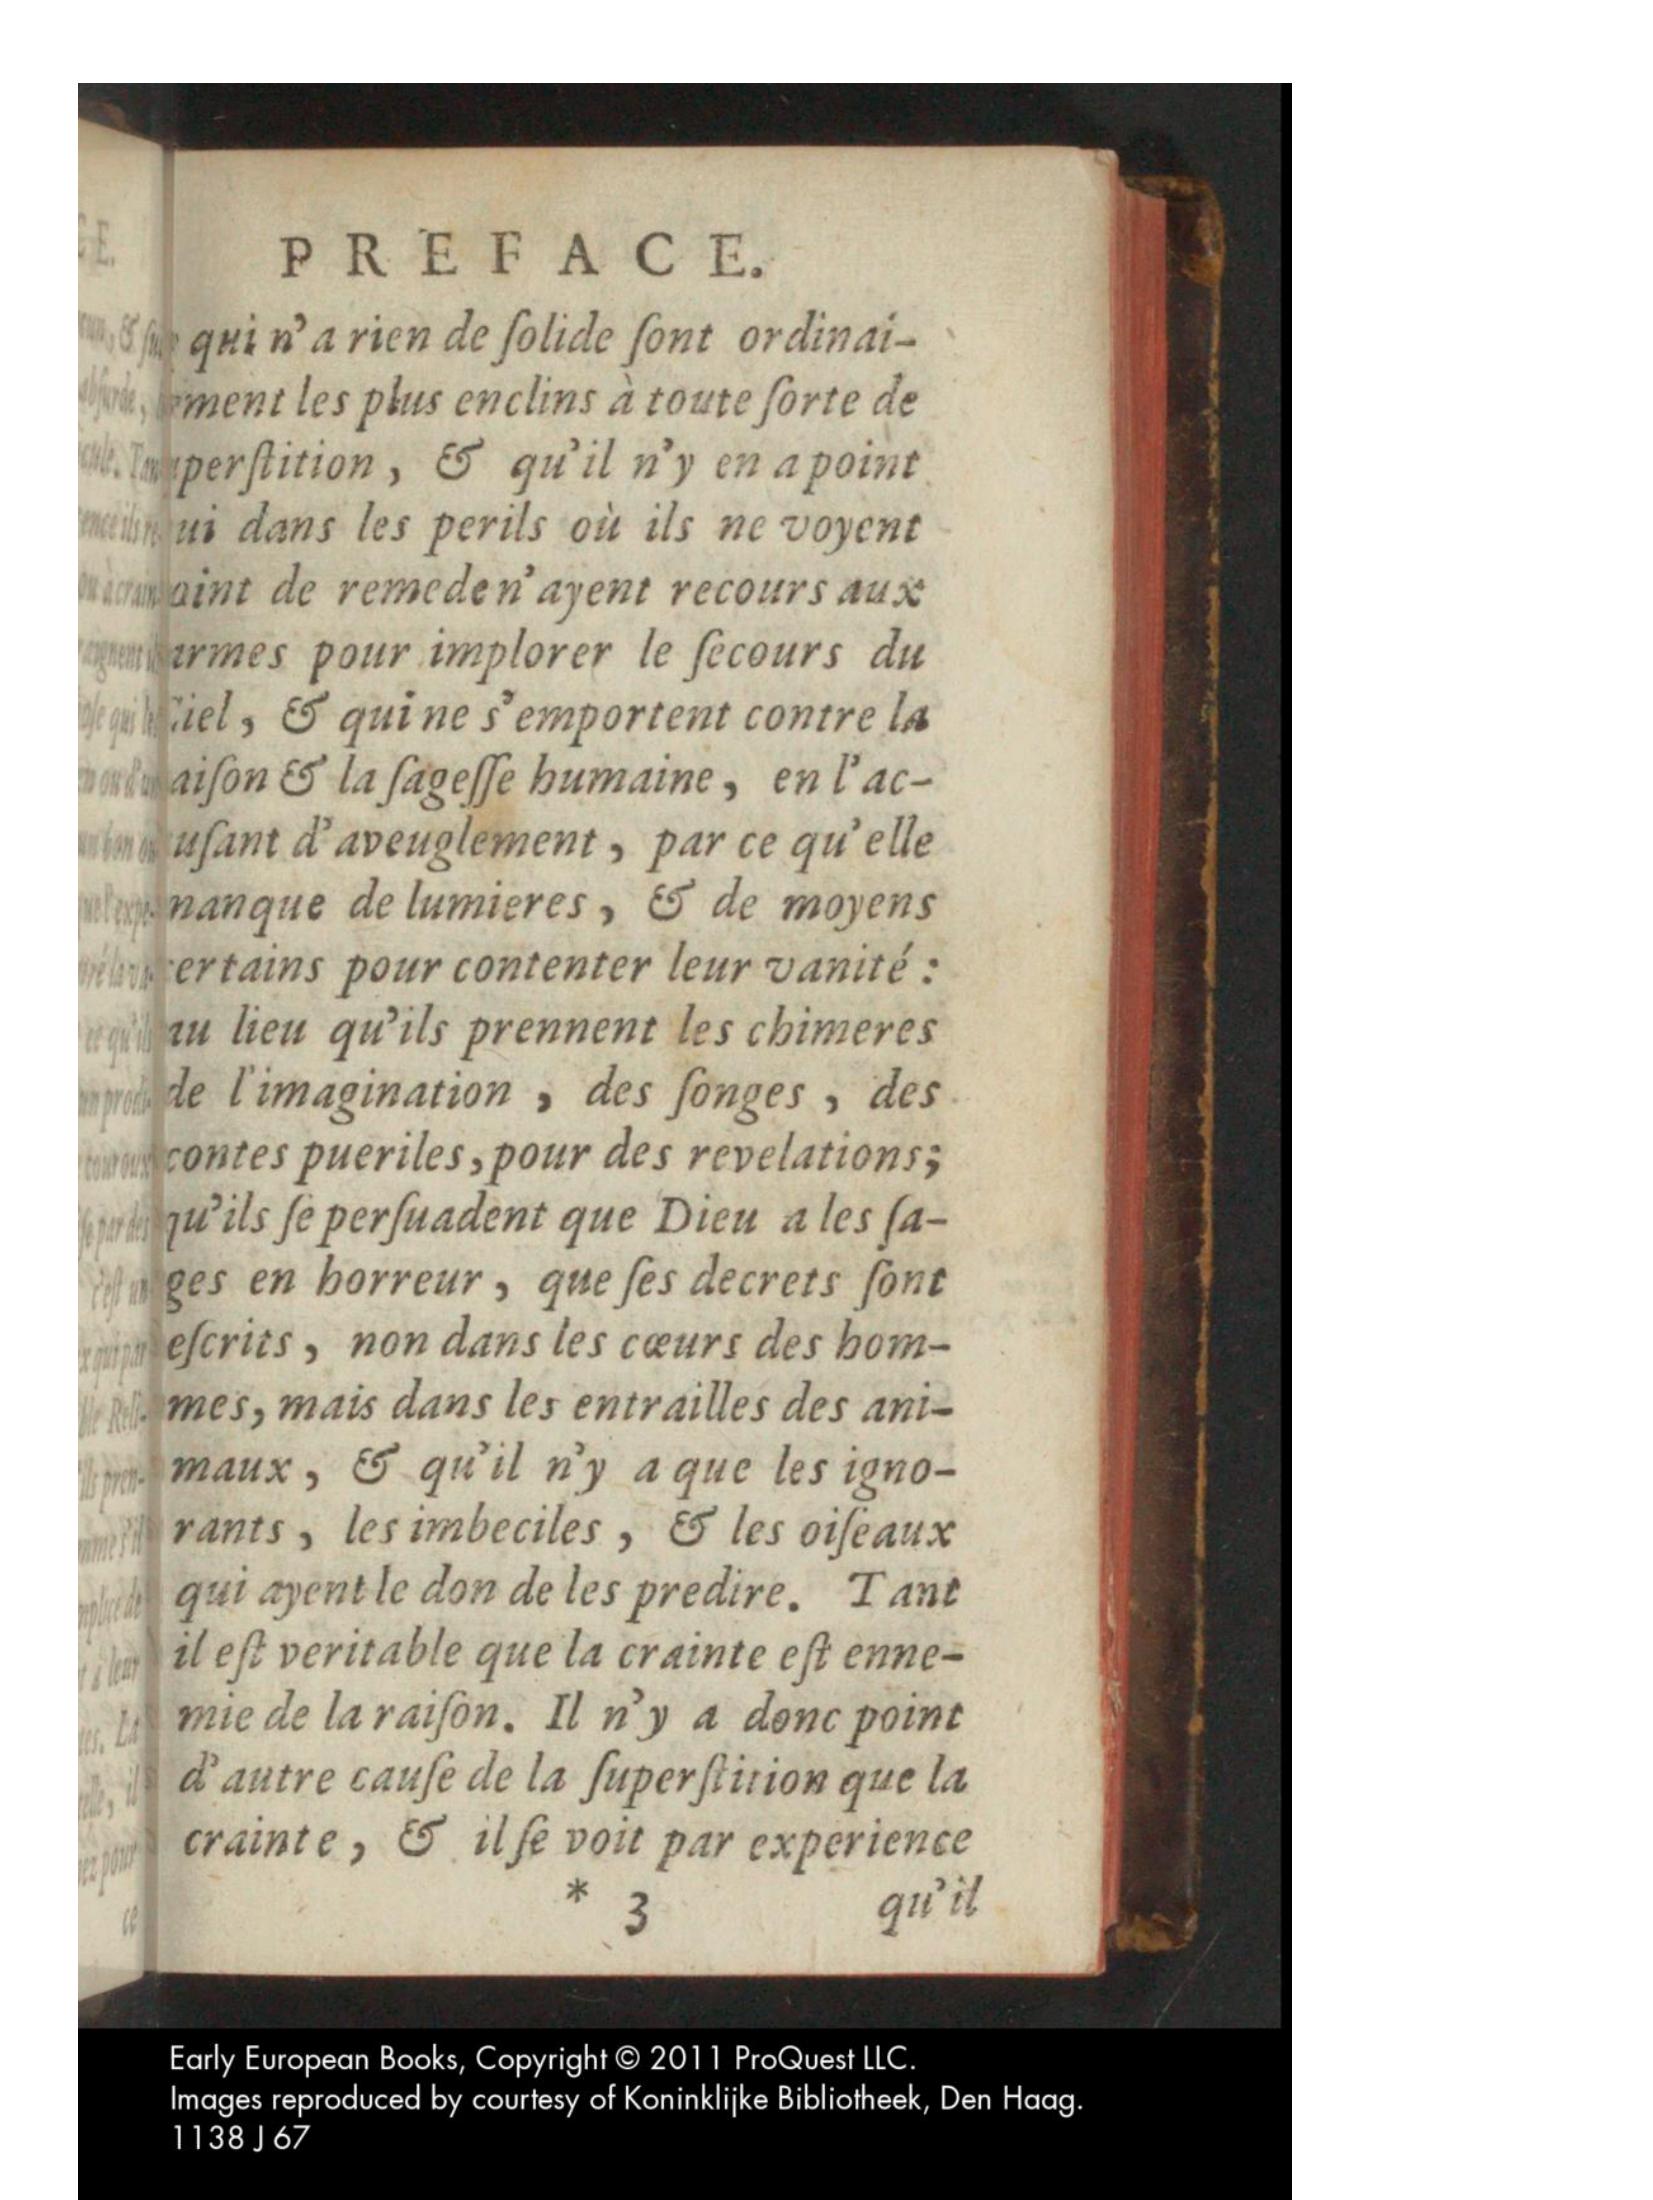 PREFACE.
qui n'a rien de ſolide ſont ordinai-
ment les plus enclins à toute ſorte de
perſtition, & qu'il n'y en a point
ui dans les perils où ils ne voyent
oint de remede n'ayent recours aux
armes pour implorer le ſecours du
Ciel, & qui ne s'emportent contre la
aiſon & la ſageſſe humaine, en l'ac-
uſant d'aveuglement, par ce qu'elle
manque de lumieres, & de moyens
certains pour contenter leur vanité :
au lieu qu'ils prennent les chimeres
de l'imagination, des ſonges, des
contes pueriles, pour des revelations;
qu'ils ſe perſuadent que Dieu a les ſa-
ges en horreur, que ſes decrets ſont
eſcrits, non dans les cœurs des hom-
mes, mais dans les entrailles des ani-
maux, & qu'il n'y a que les igno-
rants, les imbeciles, & les oiſeaux
qui ayent le don de les predire. Tant
il eſt veritable que la crainte eſt enne-
mie de la raiſon. Il n'y a donc point
d'autre cauſe de la ſuperſtition que la
crainte, & il ſe voit par experience
* 3 qu'il
Early European Books, Copyright © 2011 ProQuest LLC.
Images reproduced by courtesy of Koninklijke Bibliotheek, Den Haag.
1138 J 67